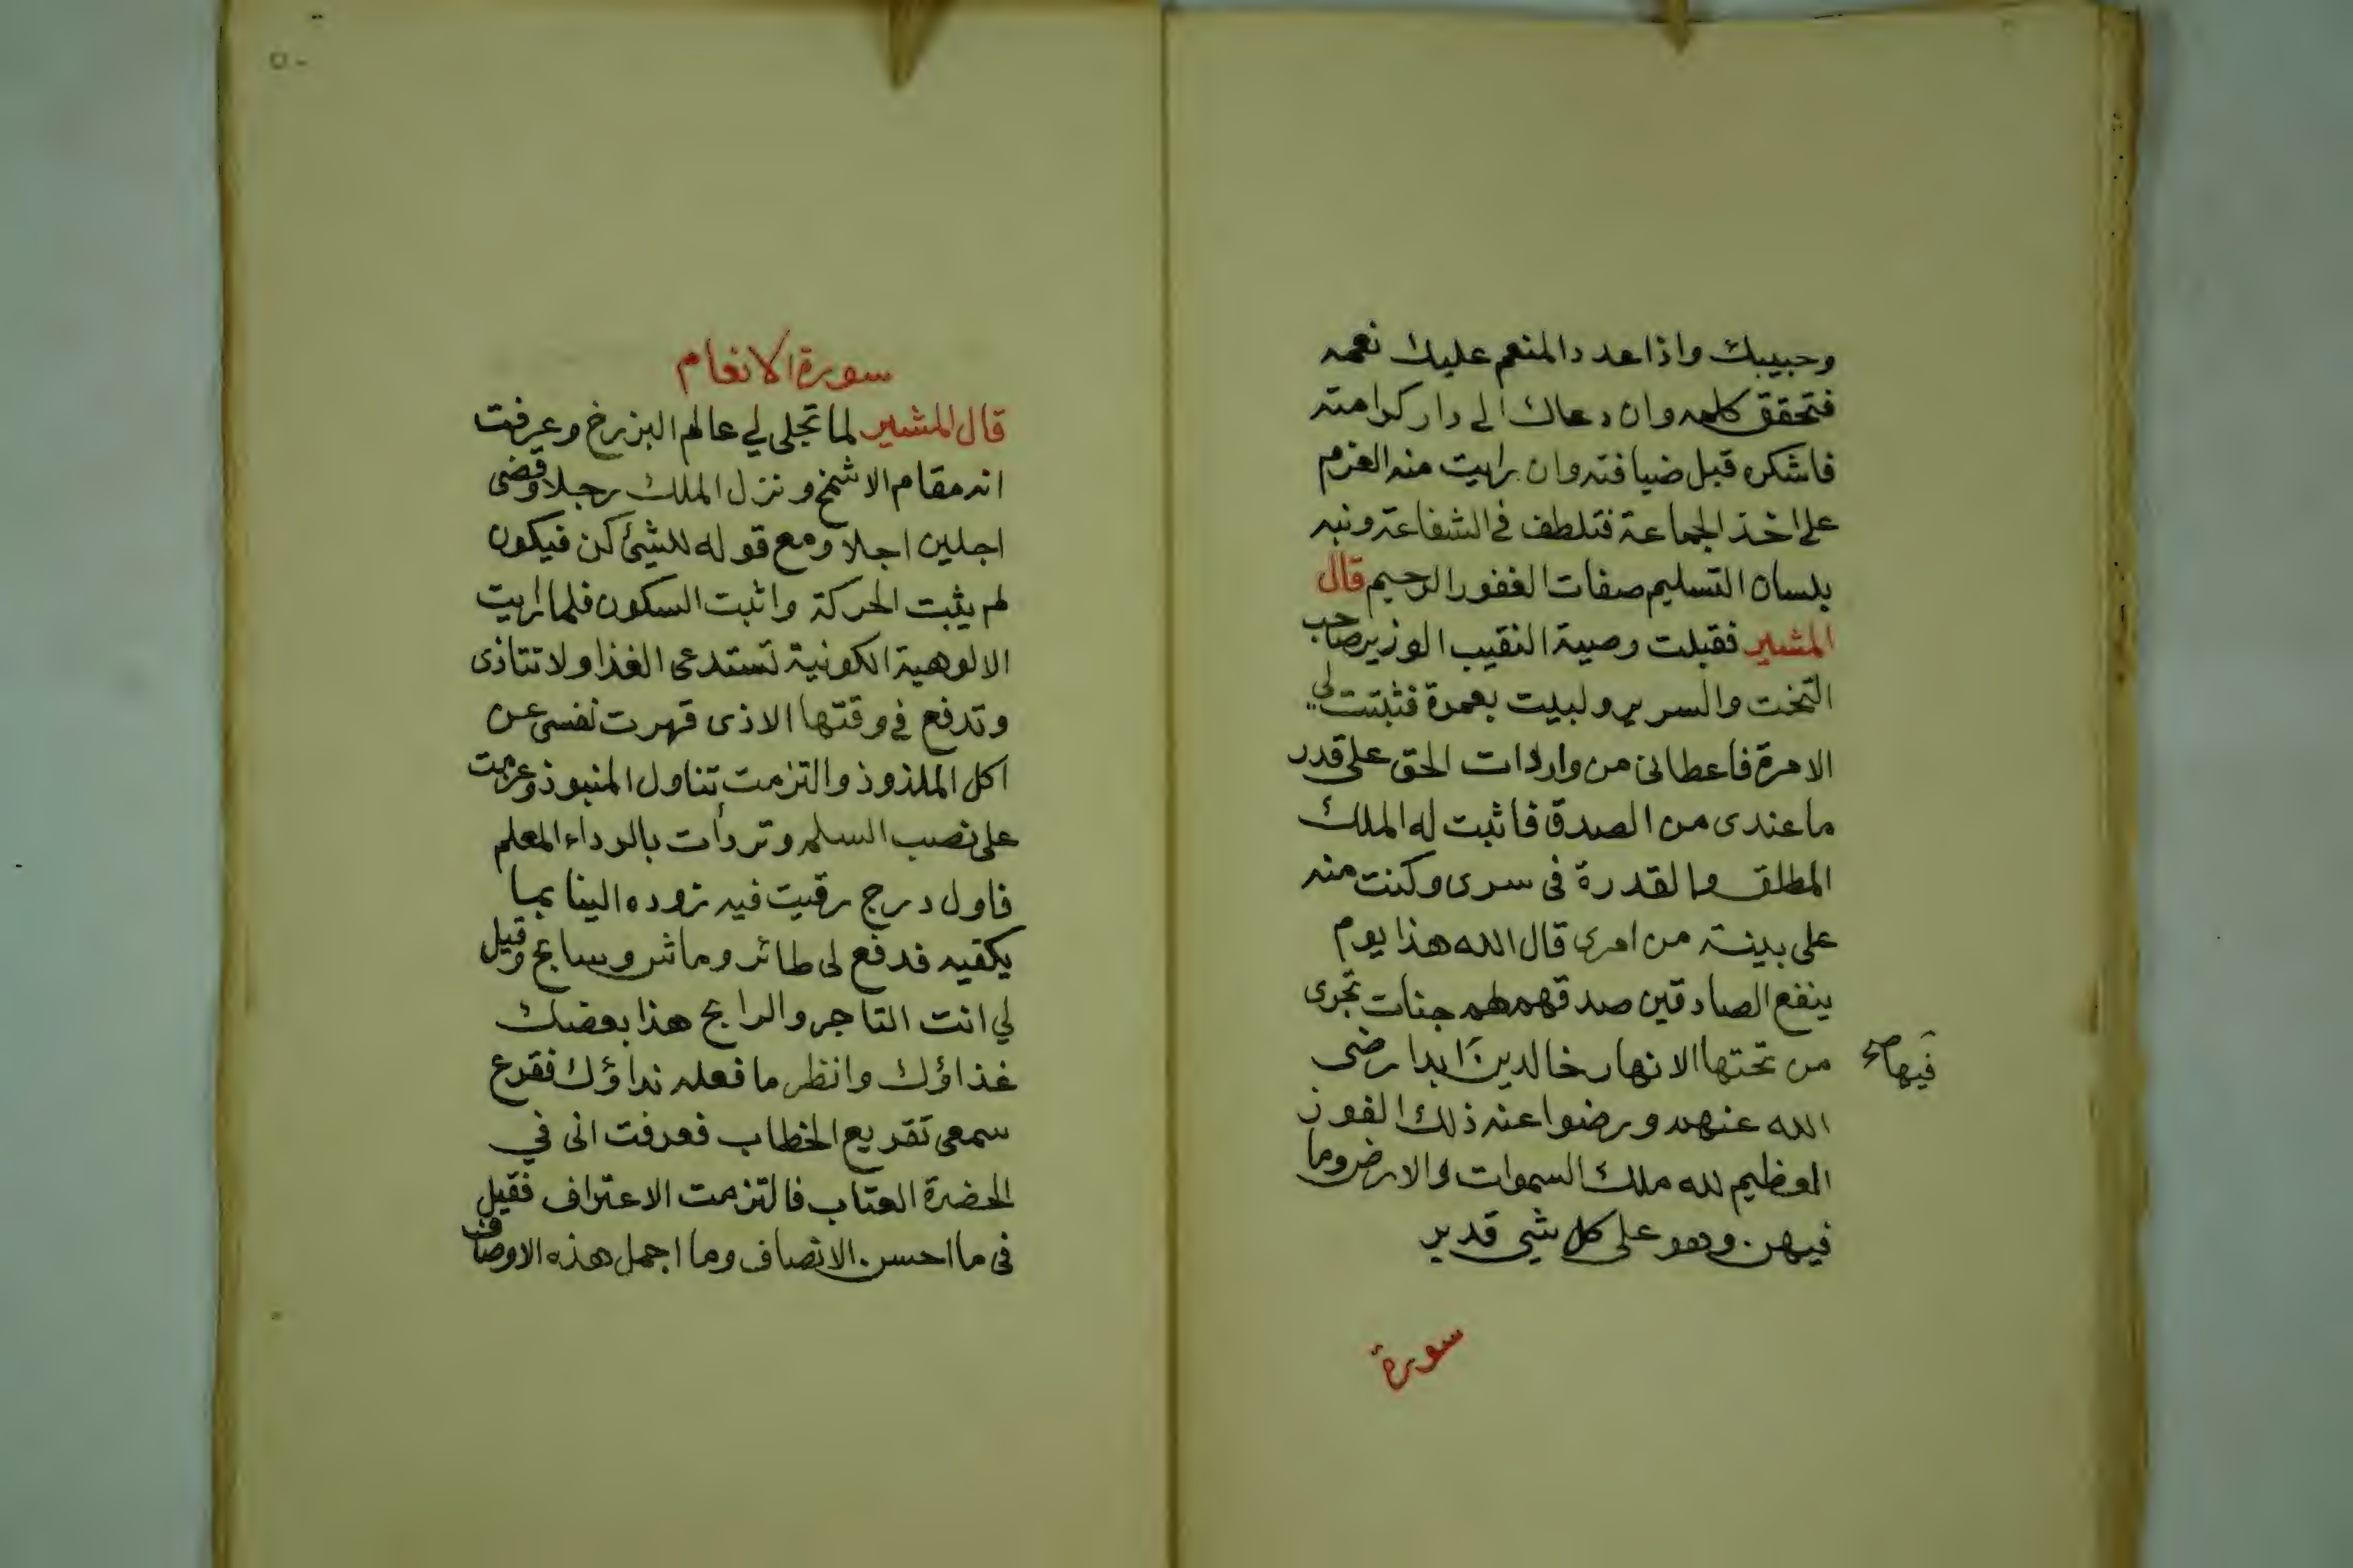 وحبيبك واذا عدد المنعم عليك نعمه
فتحقق كلمه وان دعاك الى دار كرامته
فاشكره قبل ضيافته وان رايت منه العزم
على اخذ الجماعة فتلطف في الشفاعة ونبه
بلسان التسليم صفات الغفور الرحيم قال
المشير فقبلت وصية النقيب الوزير صاحب
التخت والسرير ولبيت بعمرة فثبتت لي
الامرة فاعطانى من واردات الحق على قدر
ما عندى من الصدق فاثبت له الملك
المطلق والقدرة فى سرى وكنت منه
على بينة من امرى قال الله هذا يوم
ينفع الصادقين صدقهم لهم جنات تجرى
من تحتها الانهار خالدين ابدا رضى
فيها صح
الله عنهم ورضوا عنه ذلك الفوز
العظيم لله ملك السموات والارض وما
فيهن وهو على كل شي قدير
سورة
٥٠
سورة الانعام
قال المشير لما تجلى لي عالم البرزخ وعرفت
انه مقام الاشمخ ونزل الملك رجلا وقضى
اجلين اجلا ومع قوله للشئ كن فيكون
لم يثبت الحركة واثبت السكون فلما رايت
الالوهية الكونية تستدعى الغذا ولا تتاذى
وتدفع في وقتها الاذى قهرت نفسى عن
اكل الملذوذ والتزمت تناول المنبوذ وعزمت
على نصب السلم وتردأت بالرداء المعلم
فاول درج رقيت فيه زوده الينا بما
يكفيه فدفع لى طائر وماشر وسابح وقيل
لي انت التاجر والرابح هذا بعضك
غذاؤك وانظر ما فعله نداؤك فقرع
سمعى تقريع الخطاب فعرفت انى في
الحضرة العتاب فالتزمت الاعتراف فقيل
فى ما احسن الانصاف وما اجمل هذه الاوصاف